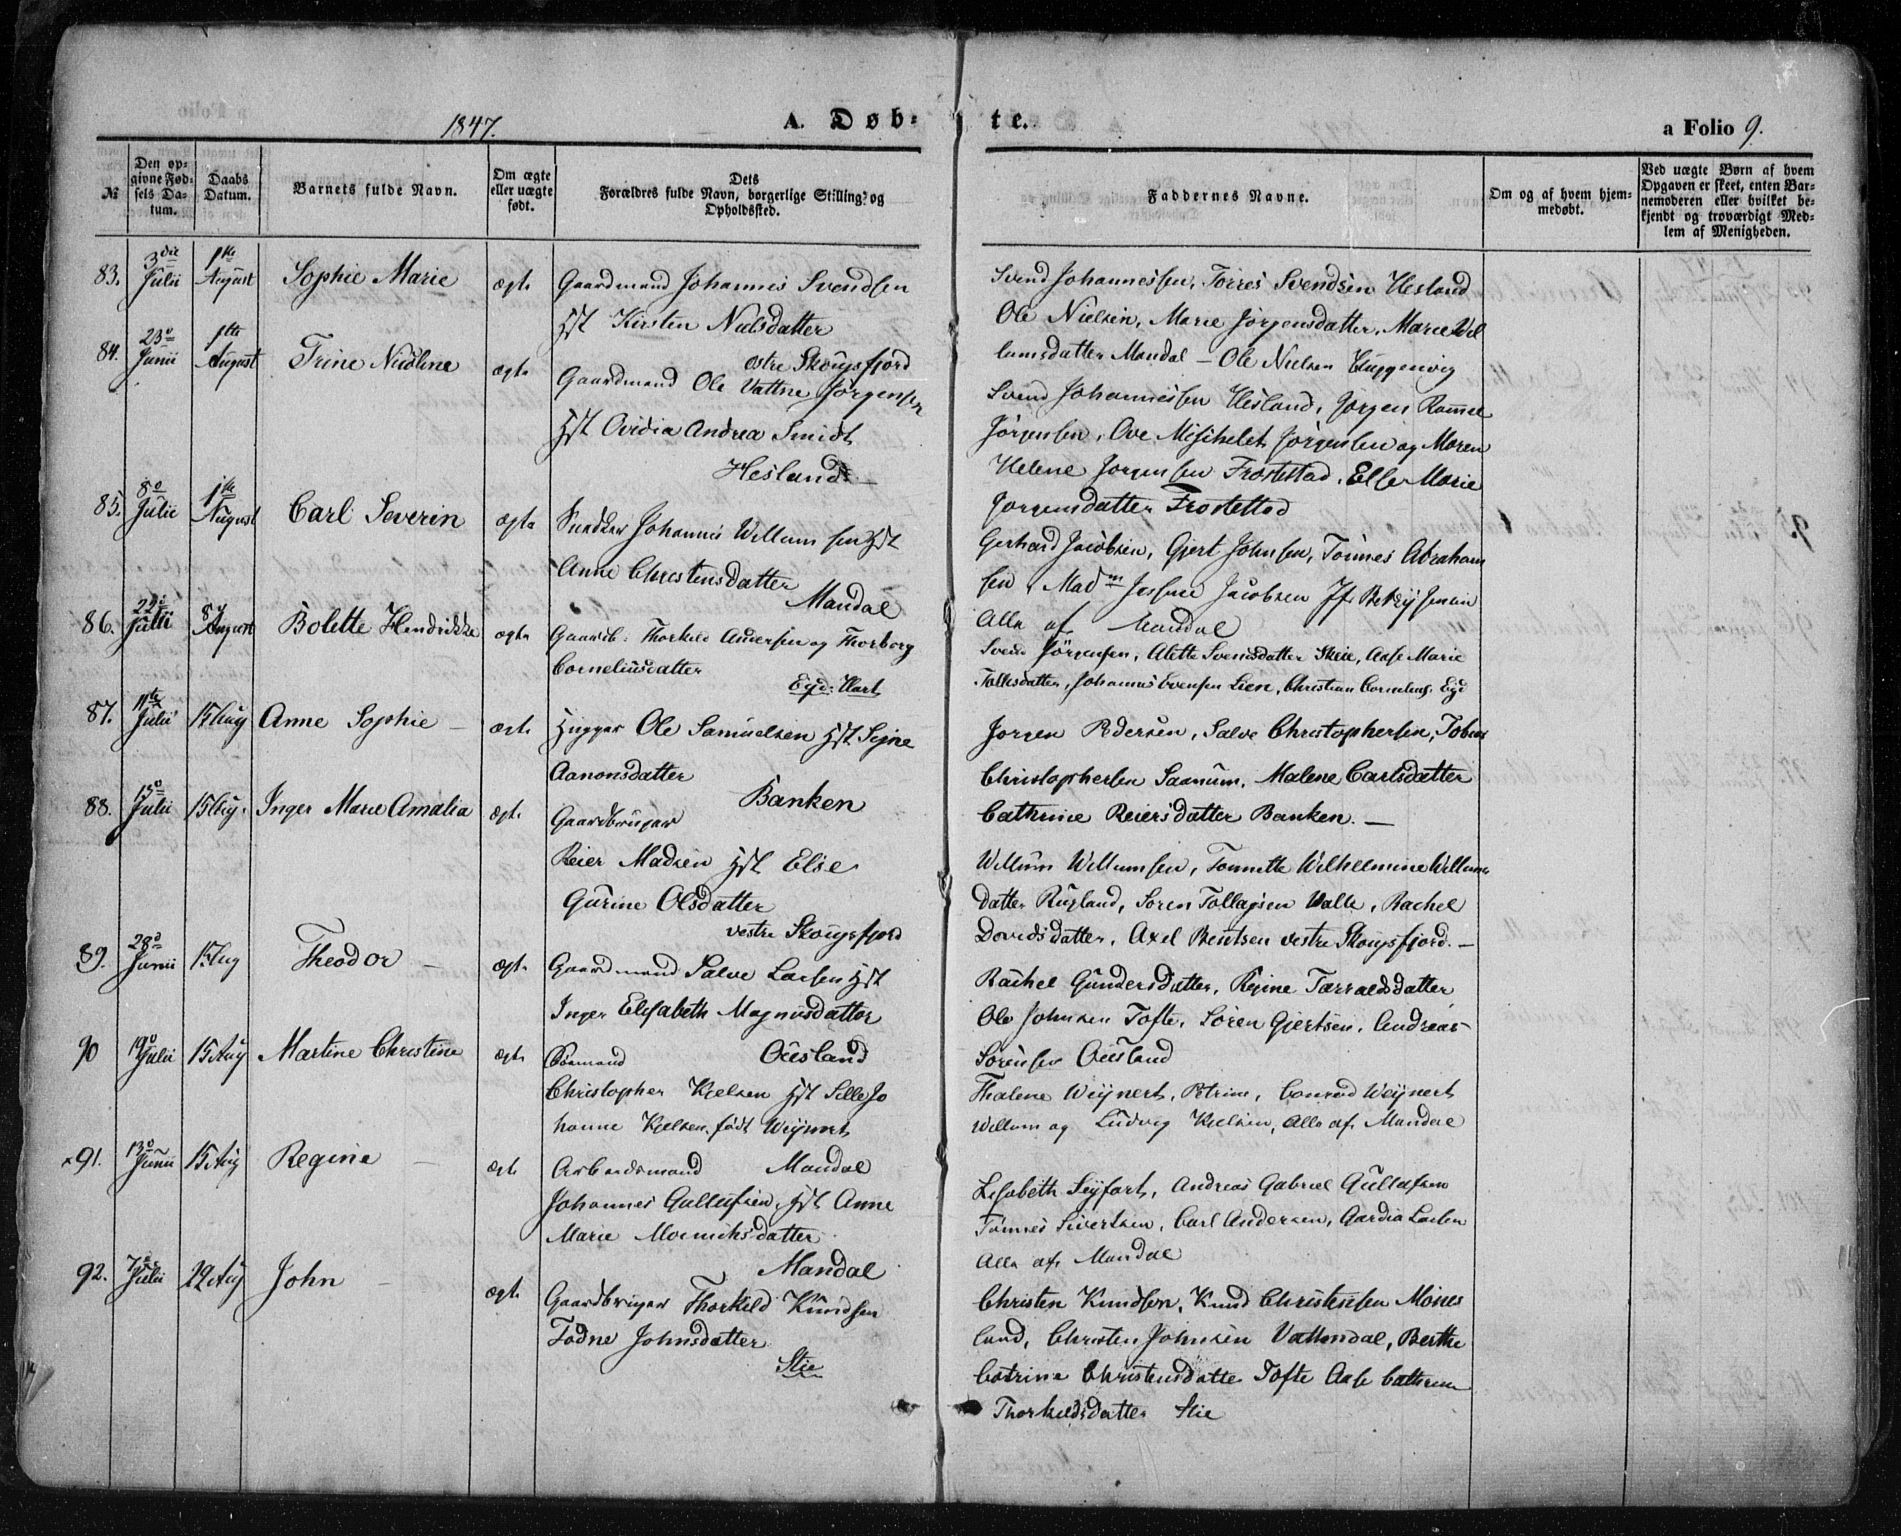 1847.
A. Døb-
te.
a Folio 9.
№
Den op-
givne Fød-
sels Da-
tum.
Daabs
Datum.
Barnets fulde Navn.
Om ægte
eller uægte
født.
Dets
Forældres fulde Navn, borgerlige Stilling og
Opholdssted.
Faddernes Navne.
Om og af hvem hjem-
medøbt.
Ved uægte Børn af hvem
Opgaven er skeet, enten Bar-
nemoderen eller hvilket be-
kjendt og troværdigt Med-
lem af Menigheden.
83.
3die
Julii
1ste
August
Sophie Marie
ægte
Gaardmand Johannis Svendsen
Hst Kirsten Nielsdatter
østre Skougsfjord
Svend Johannessen, Torres Svendsen Hesland
Ole Nielsen, Marie Jørgensdatter, Marie Wil
lumsdatter Mandal – Ole Nielsen
84.
23de
Junii
1ste
August
Trine Nicoline
ægte
Gaardmand Ole Vattne Jørgensen
Hst Ovidia Andrea Smidt
Hesland –
Svend Johannessen Hesland, Jørgen
Jørgensen, Ove Jørgensen og Maren
Helene Jørgensen Frostestad, Else Marie
Jørgensdatter Frostestad
85.
8de
Julii
1ste
August
Carl Severin
ægte
Snedker Johannis Willumsen Hst
Anne Christensdatter
Mandal
Gerhard Jacobsen, Gjert Johnsen, Tønnes Abraham
sen, Madm Jacobsen Jfr Betzy Jensen
Alle af Mandal
86.
22de
Julii
8de
August
Bolette Hendrikke
ægte
Gaardb: Thorkild Andersen og Thorborg
Corneliusdatter
Egd: Hart
Svend Jørgensen, Alette Svendsdatter Skeie, Aase Marie
Tolleksdatter, Johannes Evensen Lien, Christian Cornelius. Egd
87.
11te
Julii
15 Aug
Anne Sophie –
ægte
Hugger Ole Samuelsen Hst Signe
Aanonsdatter
Banken
Jørgen Pedersen, Salve Christophersen, Tobias
Christophersen Saanum, Malene Carlsdatter
Cathrine Reiersdatter Banken. –
88.
15de
Julii
15 Aug.
Inger Marie Amalia
ægte
Gaardbruger
Reier Madsen Hst Else
Gurine Olsdatter
vestre Skougsfjord
Willum Willumsen, Tonnette Wilhelmine Willums
datter Rugland, Søren Tollagsen Walle, Rachel
Davidsdatter, Axel Bentsen vestre Skougsfjord. –
89.
28de
Junii
15 Aug
Theodor –
ægte
Gaardmand Salve Larsen Hst
Inger Elisabeth Magnusdatter
Ouesland
Rachel Gundersdatter, Regine Tarraldsdatter
Ole Johnsen Tofte, Søren Gjertsen, Andreas
Sørensen Ouesland
90
19de
Julii
15 Aug
Martine Christine
ægte
Christopher Kielsen Hst Sille Jo
hanne Kielsen, født Weynert
Mandal
Thalene Weynert, Petrine, Conrad Weynert
Willum og Ludvig Kielsen, Alle af Mandal
×91.
13de
Junii
15 Aug
Regine –
ægte
Arbeidsmand
Johannes Gullufsen, Hst Anne
Marie
Mandal
Lisabeth Seyfart, Andreas Gabriel Gullufsen
Tønnes Sivertsen, Carl Andersen, Larsen
Alle af Mandal
92.
7de
Julii
22 Aug
John –
ægte
Gaardbruger Thorkild Knudsen
Todne Johnsdatter
Stie
Christen Knudsen, Knud Christensen Mones
land, Christen Johnsen Vattendal, Berthe
Catrine Christensdatter Tofte Aase Cathrine
Thorkildsdatter Stie